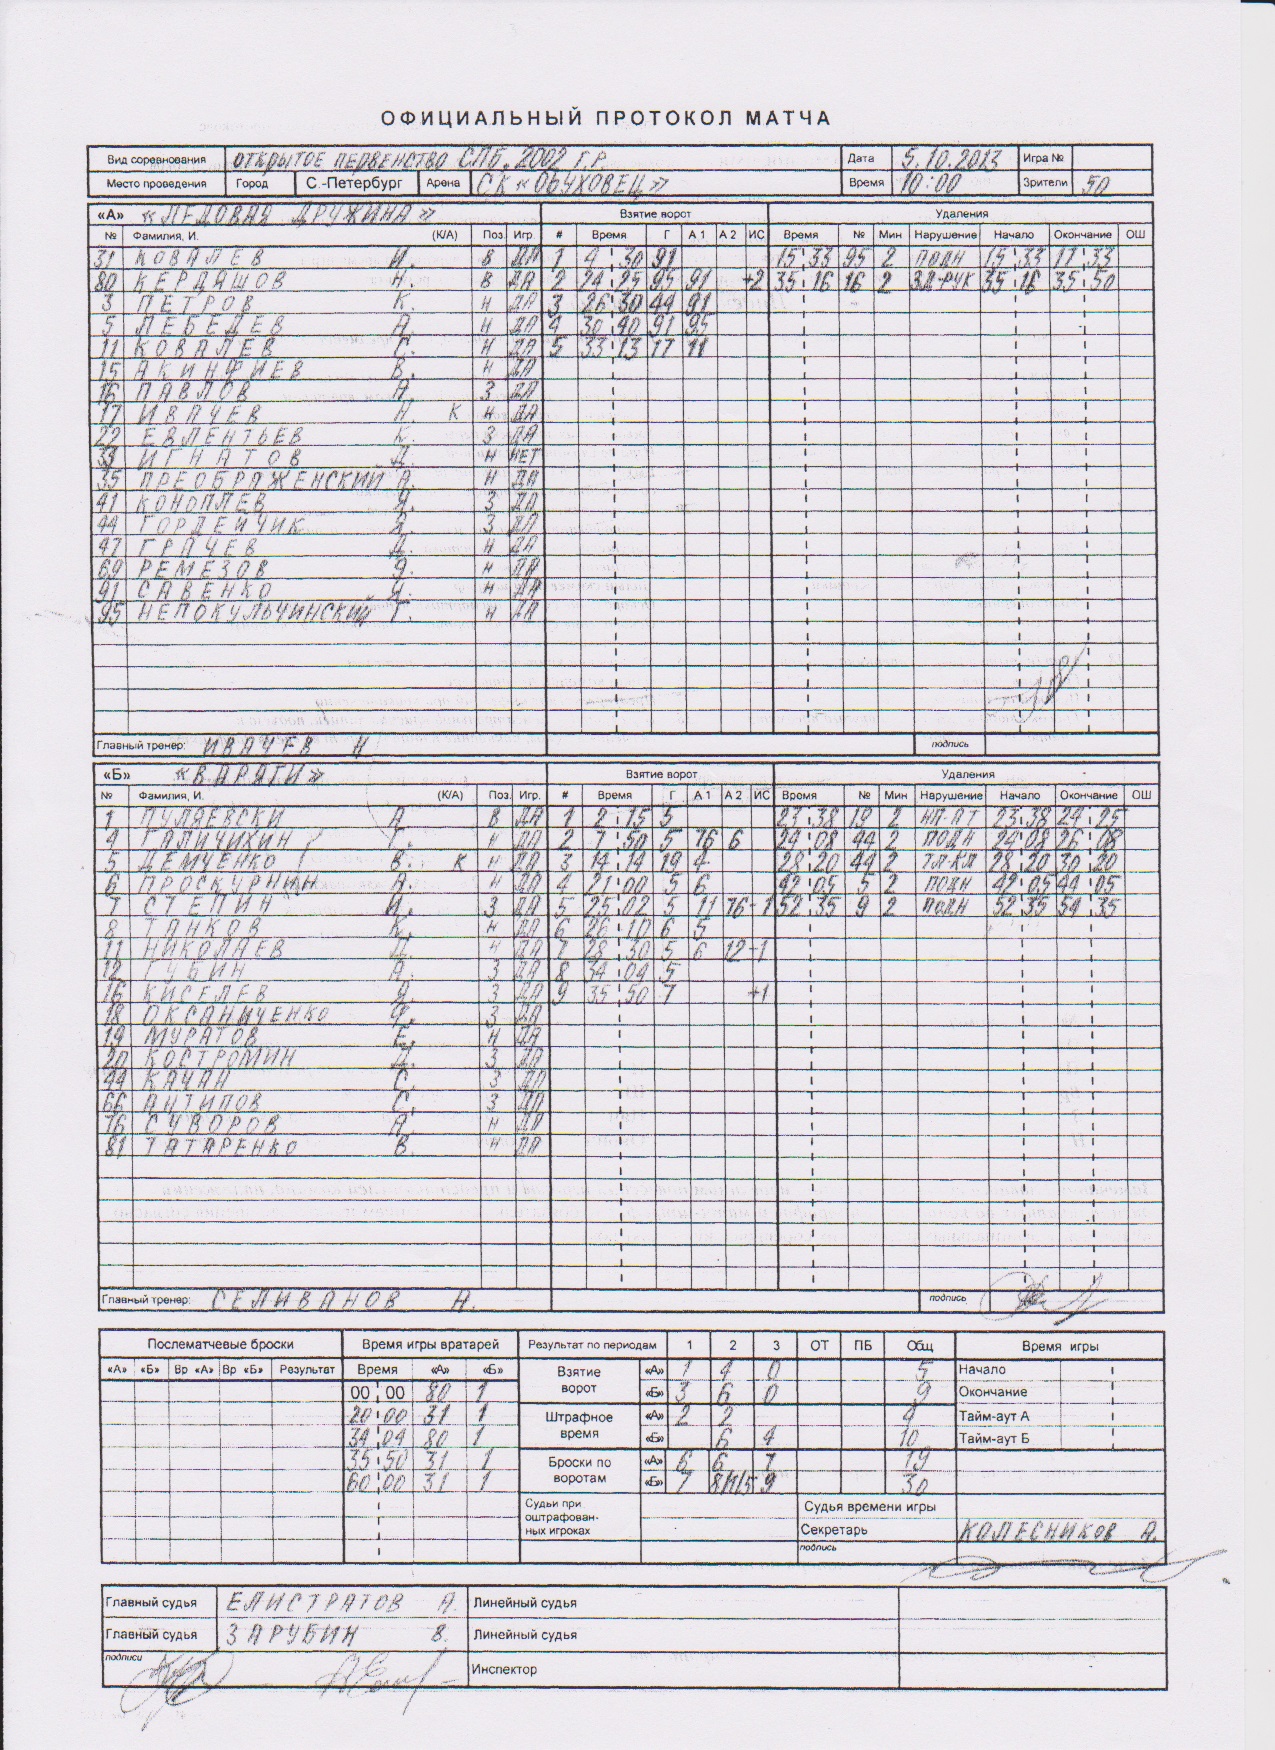 ОФИЦИАЛЬНЫЙ ПРОТОКОЛ МАТЧА
Вид соревнования ОТКРЫТОЕ ПЕРВЕНСТВО СПБ. 2002 Г.Р. Дата 5.10.2013 Игра №
Место проведения Город С.-Петербург Арена СК «ОБУХОВЕЦ» Время 10:00 Зрители 50
«А» «ЛЕДОВАЯ ДРУЖИНА» Взятие ворот Удаления
№ Фамилия, И. (К/А) Поз. Игр. # Время Г А 1 А 2 ИС Время № Мин Нарушение Начало Окончание ОШ
31 КОВАЛЕВ И. В ДА 1 4 30 91 15 33 95 2 ПОДН 15 33 17 33
80 КЕРДЯШОВ Н. В ДА 2 24 25 95 91 +2 35 16 16 2 ЗД-РУК 35 16 35 50
3 ПЕТРОВ К. Н ДА 3 26 30 44 91
5 ЛЕБЕДЕВ А. Н ДА 4 30 40 91 95
11 КОВАЛЕВ С. Н ДА 5 33 13 17 11
15 АКИНФИЕВ В. Н ДА
16 ПАВЛОВ А. З ДА
17 ИВАЧЕВ Н. К Н ДА
22 ЕВЛЕНТЬЕВ К. З ДА
33 ИГНАТОВ Д. Н НЕТ
35 ПРЕОБРАЖЕНСКИЙ А. Н ДА
41 КОНОПЛЕВ Я. З ДА
44 ГОРДЕЙЧИК З ДА
47 ГРАЧЕВ Д. Н ДА
69 РЕМЕЗОВ Н ДА
91 САВЕНКО Я. Н ДА
95 НЕПОКУЛЬЧИНСКИЙ Г. Н ДА
Главный тренер: ИВАЧЕВ Н подпись
«Б» «ВАРЯГИ» Взятие ворот Удаления
№ Фамилия, И. (К/А) Поз. Игр. # Время Г А 1 А 2 ИС Время № Мин Нарушение Начало Окончание ОШ
1 ПУЛЯЕВСКИ А. В ДА 1 2 15 5 23 38 19 2 НП-АТ 23 38 24 25
4 ГАЛИЧИХИН Г. Н ДА 2 7 50 5 76 6 24 08 44 2 ПОДН 24 08 26 08
5 ДЕМЧЕНКО В. К Н ДА 3 14 14 19 4 28 20 44 2 28 20 30 20
6 ПРОСКУРНИН А. Н ДА 4 21 00 5 6 42 05 5 2 ПОДН 42 05 44 05
7 СТЕПИН И. З ДА 5 25 02 5 11 76 -1 52 35 9 2 ПОДН 52 35 54 35
8 ТАНКОВ К. Н ДА 6 26 10 6 5
11 НИКОЛАЕВ Д. Н ДА 7 28 30 5 6 12 -1
12 ГУБИН А. З ДА 8 34 04 5
16 КИСЕЛЕВ Я. З ДА 9 35 50 7 +1
18 ОКСАНИЧЕНКО З ДА
19 МУРАТОВ Е. Н ДА
20 КОСТРОМИН Д. З ДА
44 КАЧАН С. З ДА
66 АНТИПОВ С. З ДА
76 СУВОРОВ А. Н ДА
81 ТАТАРЕНКО В. Н ДА
Главный тренер: СЕЛИВАНОВ Н. подпись
Послематчевые броски Время игры вратарей Результат по периодам 1 2 3 ОТ ПБ Общ Время игры
«А» «Б» Вр «А» Вр «Б» Результат Время «А» «Б» Взятие ворот «А» 1 4 0 5 Начало
00 00 80 1 «Б» 3 6 0 9 Окончание
20 00 31 1 Штрафное время «А» 2 2 4 Тайм-аут А
34 04 80 1 «Б» 6 4 10 Тайм-аут Б
35 50 31 1 Броски по воротам «А» 6 6 7 19
60 00 31 1 «Б» 7 9 30
Судьи при оштрафован-ных игроках Судья времени игры
Секретарь КОЛЕСНИКОВ А.
подпись
Главный судья ЕЛИСТРАТОВ А. Линейный судья
Главный судья ЗАРУБИН В. Линейный судья
подписи Инспектор